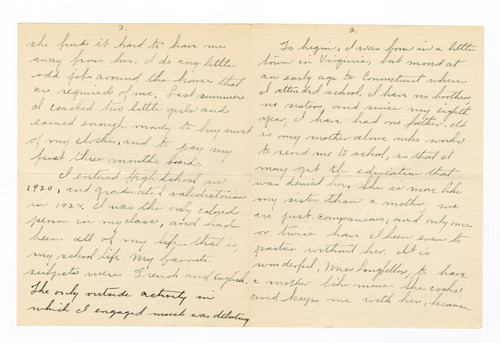 2.
To begin, I was born in a little
town in Virginia, but moved at
an early age to Connecticut where
I attended school. I have no brothers
no sisters, and since my eighth
year, I have had no father. It
is my mother alone who works
to send me to school, so that I
may get the education that
was denied her. She is more like
my sister than a mother, we
are just companions, and only once
or twice have I been even to
parties without her. It is
wonderful, Miss Longfellow, to have
a mother like mine. She cooks
and keeps me with her, because
3.
she finds it hard to have me
away from her. I do any little
odd jobs around the house that
are required of me. Last summer
I coached two little girls and
earned enough money to buy most
of my clothes, and to pay my
first three months board.
I entered High School in
1920, and graduated valedictorian
in 1924. I was the only colored
person in my class, and had
been all of my life - that is,
my school life. My favorite
subjects were French and English.
The only outside activity in
which I engaged much was debating